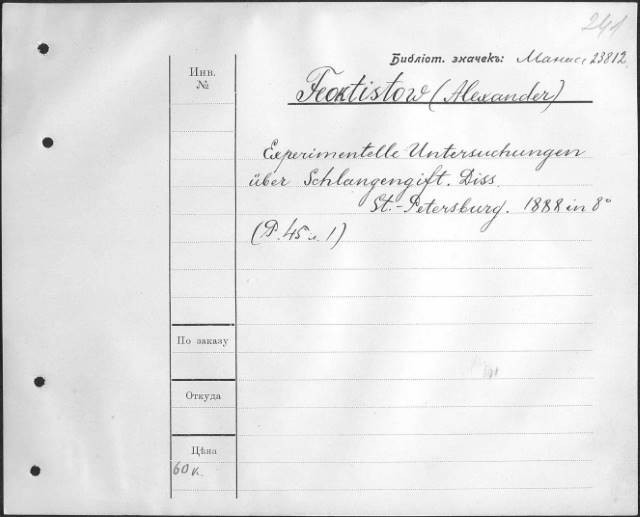 241
Библіот. значекъ: Манас. 23812
Инв.
№
Feoktistow (Alexander)
Experimentelle Untersuchungen
über Schlangengift. Diss.
St.-Petersburg. 1888 in 8°
(P. 45 л. 1)
По заказу
Откуда
Цѣна
60 к.